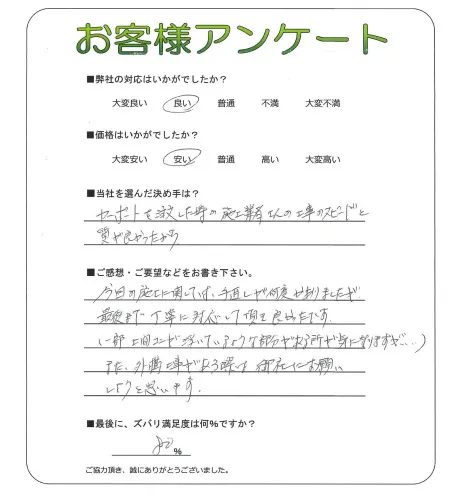 お客様アンケート
■弊社の対応はいかがでしたか？
大変良い 良い 普通 不満 大変不満
■価格はいかがでしたか？
大変安い 安い 普通 高い 大変高い
■当社を選んだ決め手は？
カーポートを注文した時の施工業者さんの工事のスピードと
質が良かったから
■ご感想・ご要望などをお書き下さい。
今回の施工に関しては、手直しが何度かありましたが
最後まで丁寧に対応して頂き良かったです。
(一部土間コンが浮いているような部分がある所が気になりますが…)
また、外構工事がある際は御社にお願い
しようと思います。
■最後に、ズバリ満足度は何%ですか？
%
ご協力頂き、誠にありがとうございました。